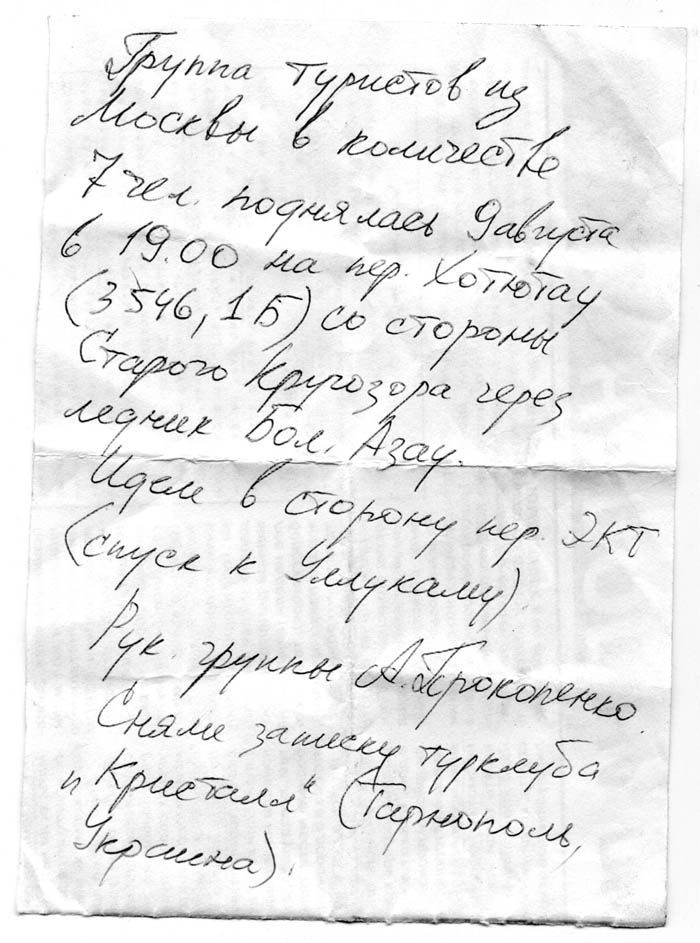 Группа туристов из
Москвы в количестве
7 чел. поднялась 9 августа
в 19.00 на пер. Хотютау
(3546, 1Б) со стороны
Старого Кругозора через
ледник Бол. Азау.
Идем в сторону пер. ЭКТ
(спуск к Уллукаму).
Рук. группы А. Прокопенко.
Сняли записку турклуба
„Кристалл" (Тарнополь,
Украина).